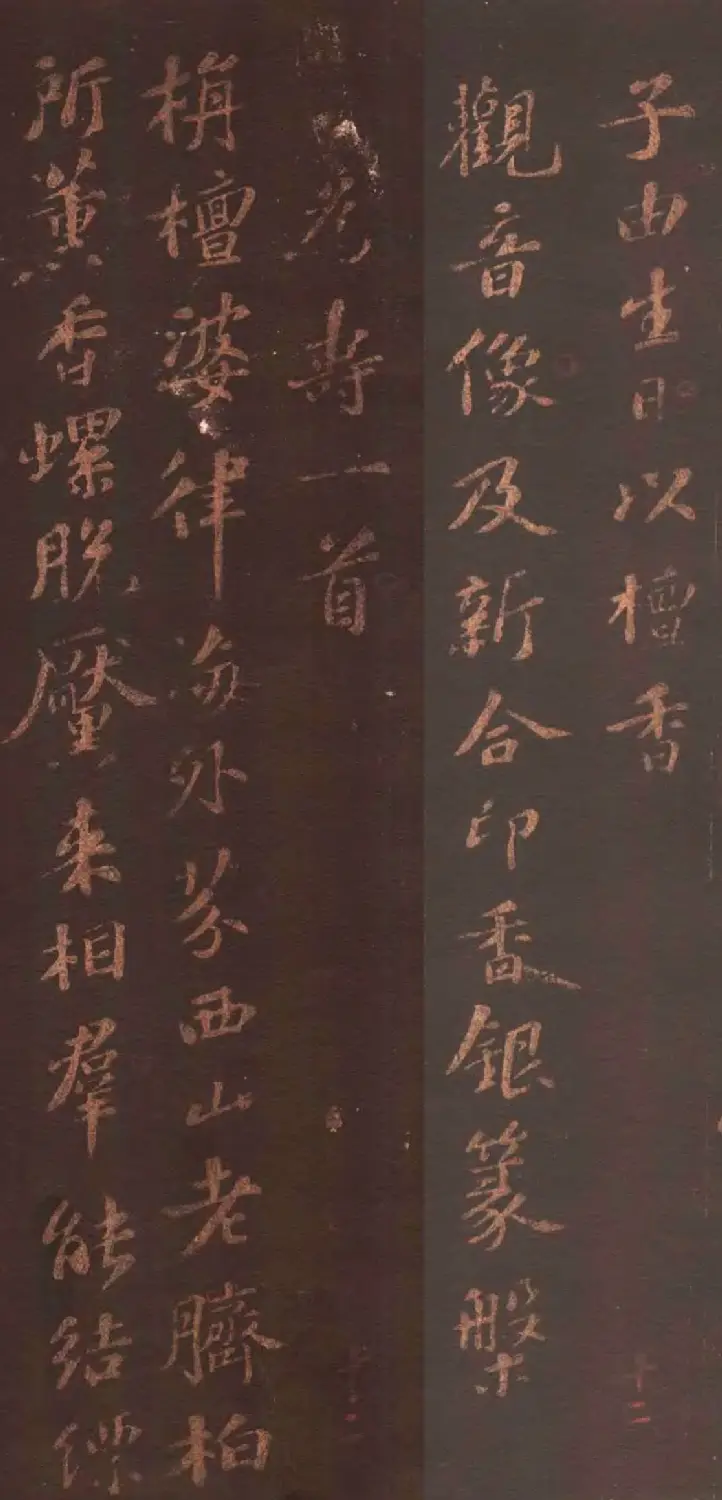 子由生日以檀香
十二
觀音像及新合印香銀篆槃
為壽一首
十二
栴檀婆律海外芬西山老臍柏
所薰香螺脫黶來相羣能結縹